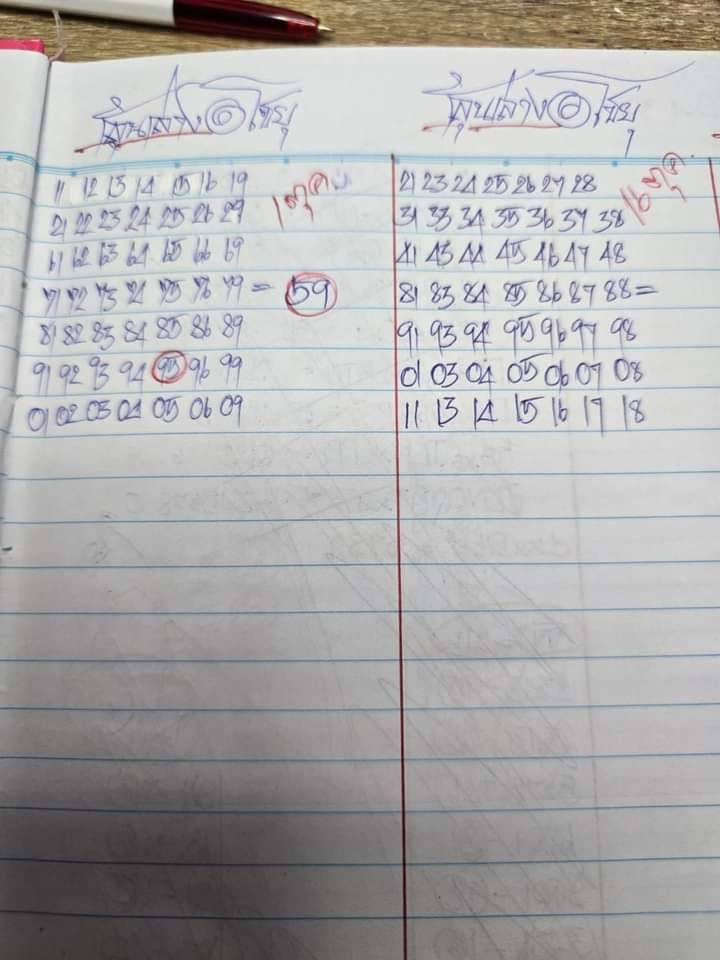 11 12 13 14 15 16 19
21 22 23 24 25 26 29
61 62 63 64 65 66 69
71 72 73 74 75 76 79 = 59
81 82 83 84 85 86 89
91 92 93 94 95 96 99
01 02 03 04 05 06 09
1 ตุค
21 23 24 25 26 27 28
31 33 34 35 36 37 38
41 43 44 45 46 47 48
81 83 84 85 86 87 88 =
91 93 94 95 96 97 98
01 03 04 05 06 07 08
11 13 14 15 16 17 18
16 ตุค